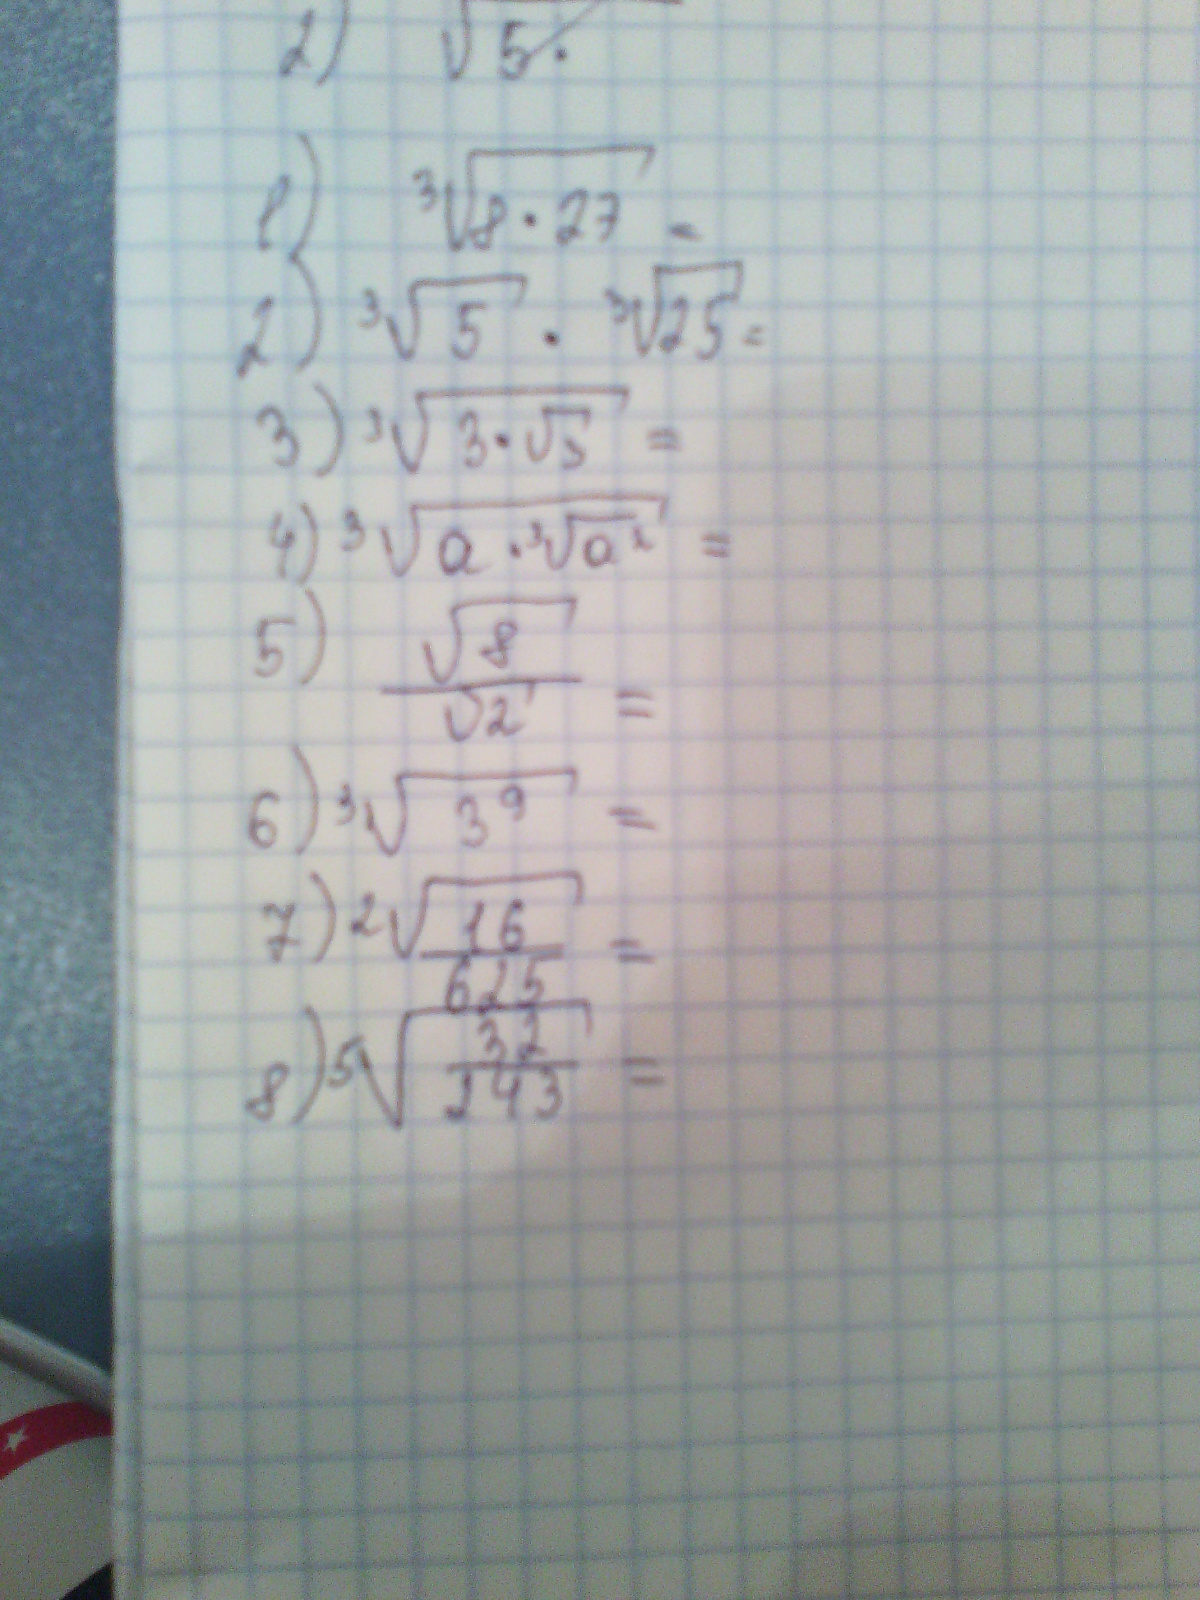 2) √5·
1) ³√8·27 =
2) ³√5 · ³√25 =
3) ³√3·√3 =
4) ³√a·³√a² =
5) √8/√2 =
6) ³√3⁹ =
7) ²√16/625 =
8) ⁵√32/243 =